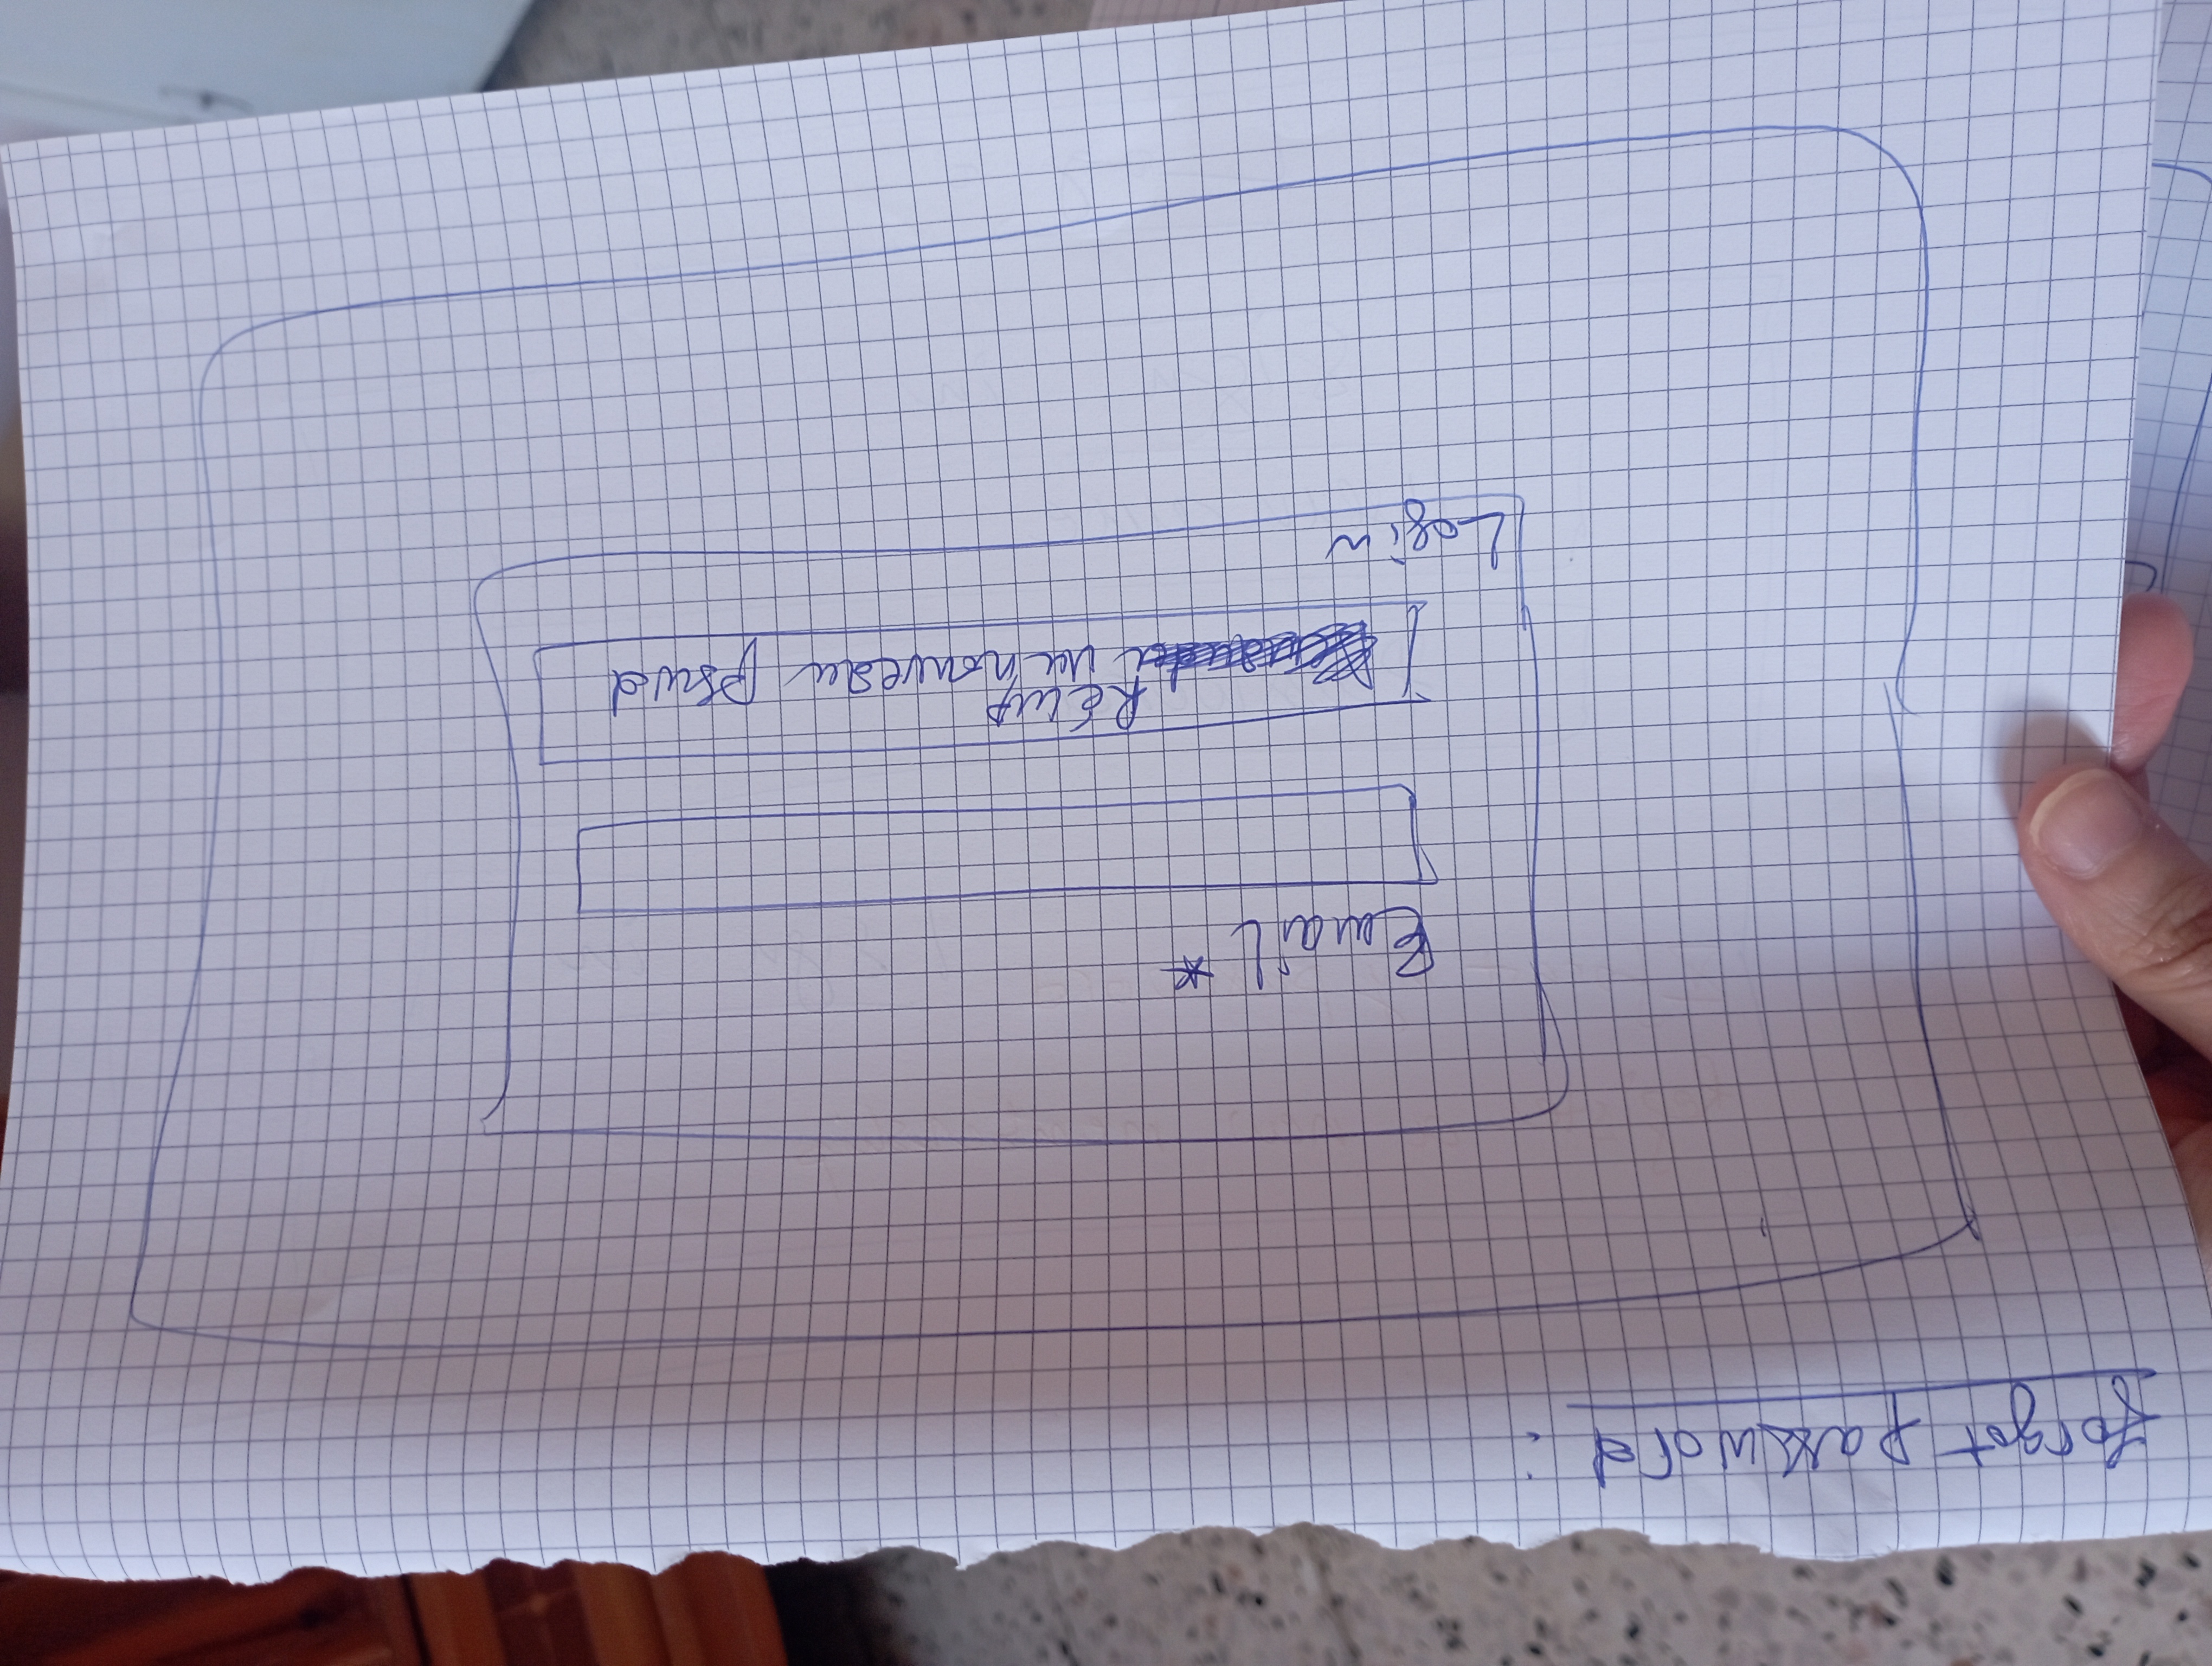 forgot password :
Email *
Récup
un nouveau pswd
Login